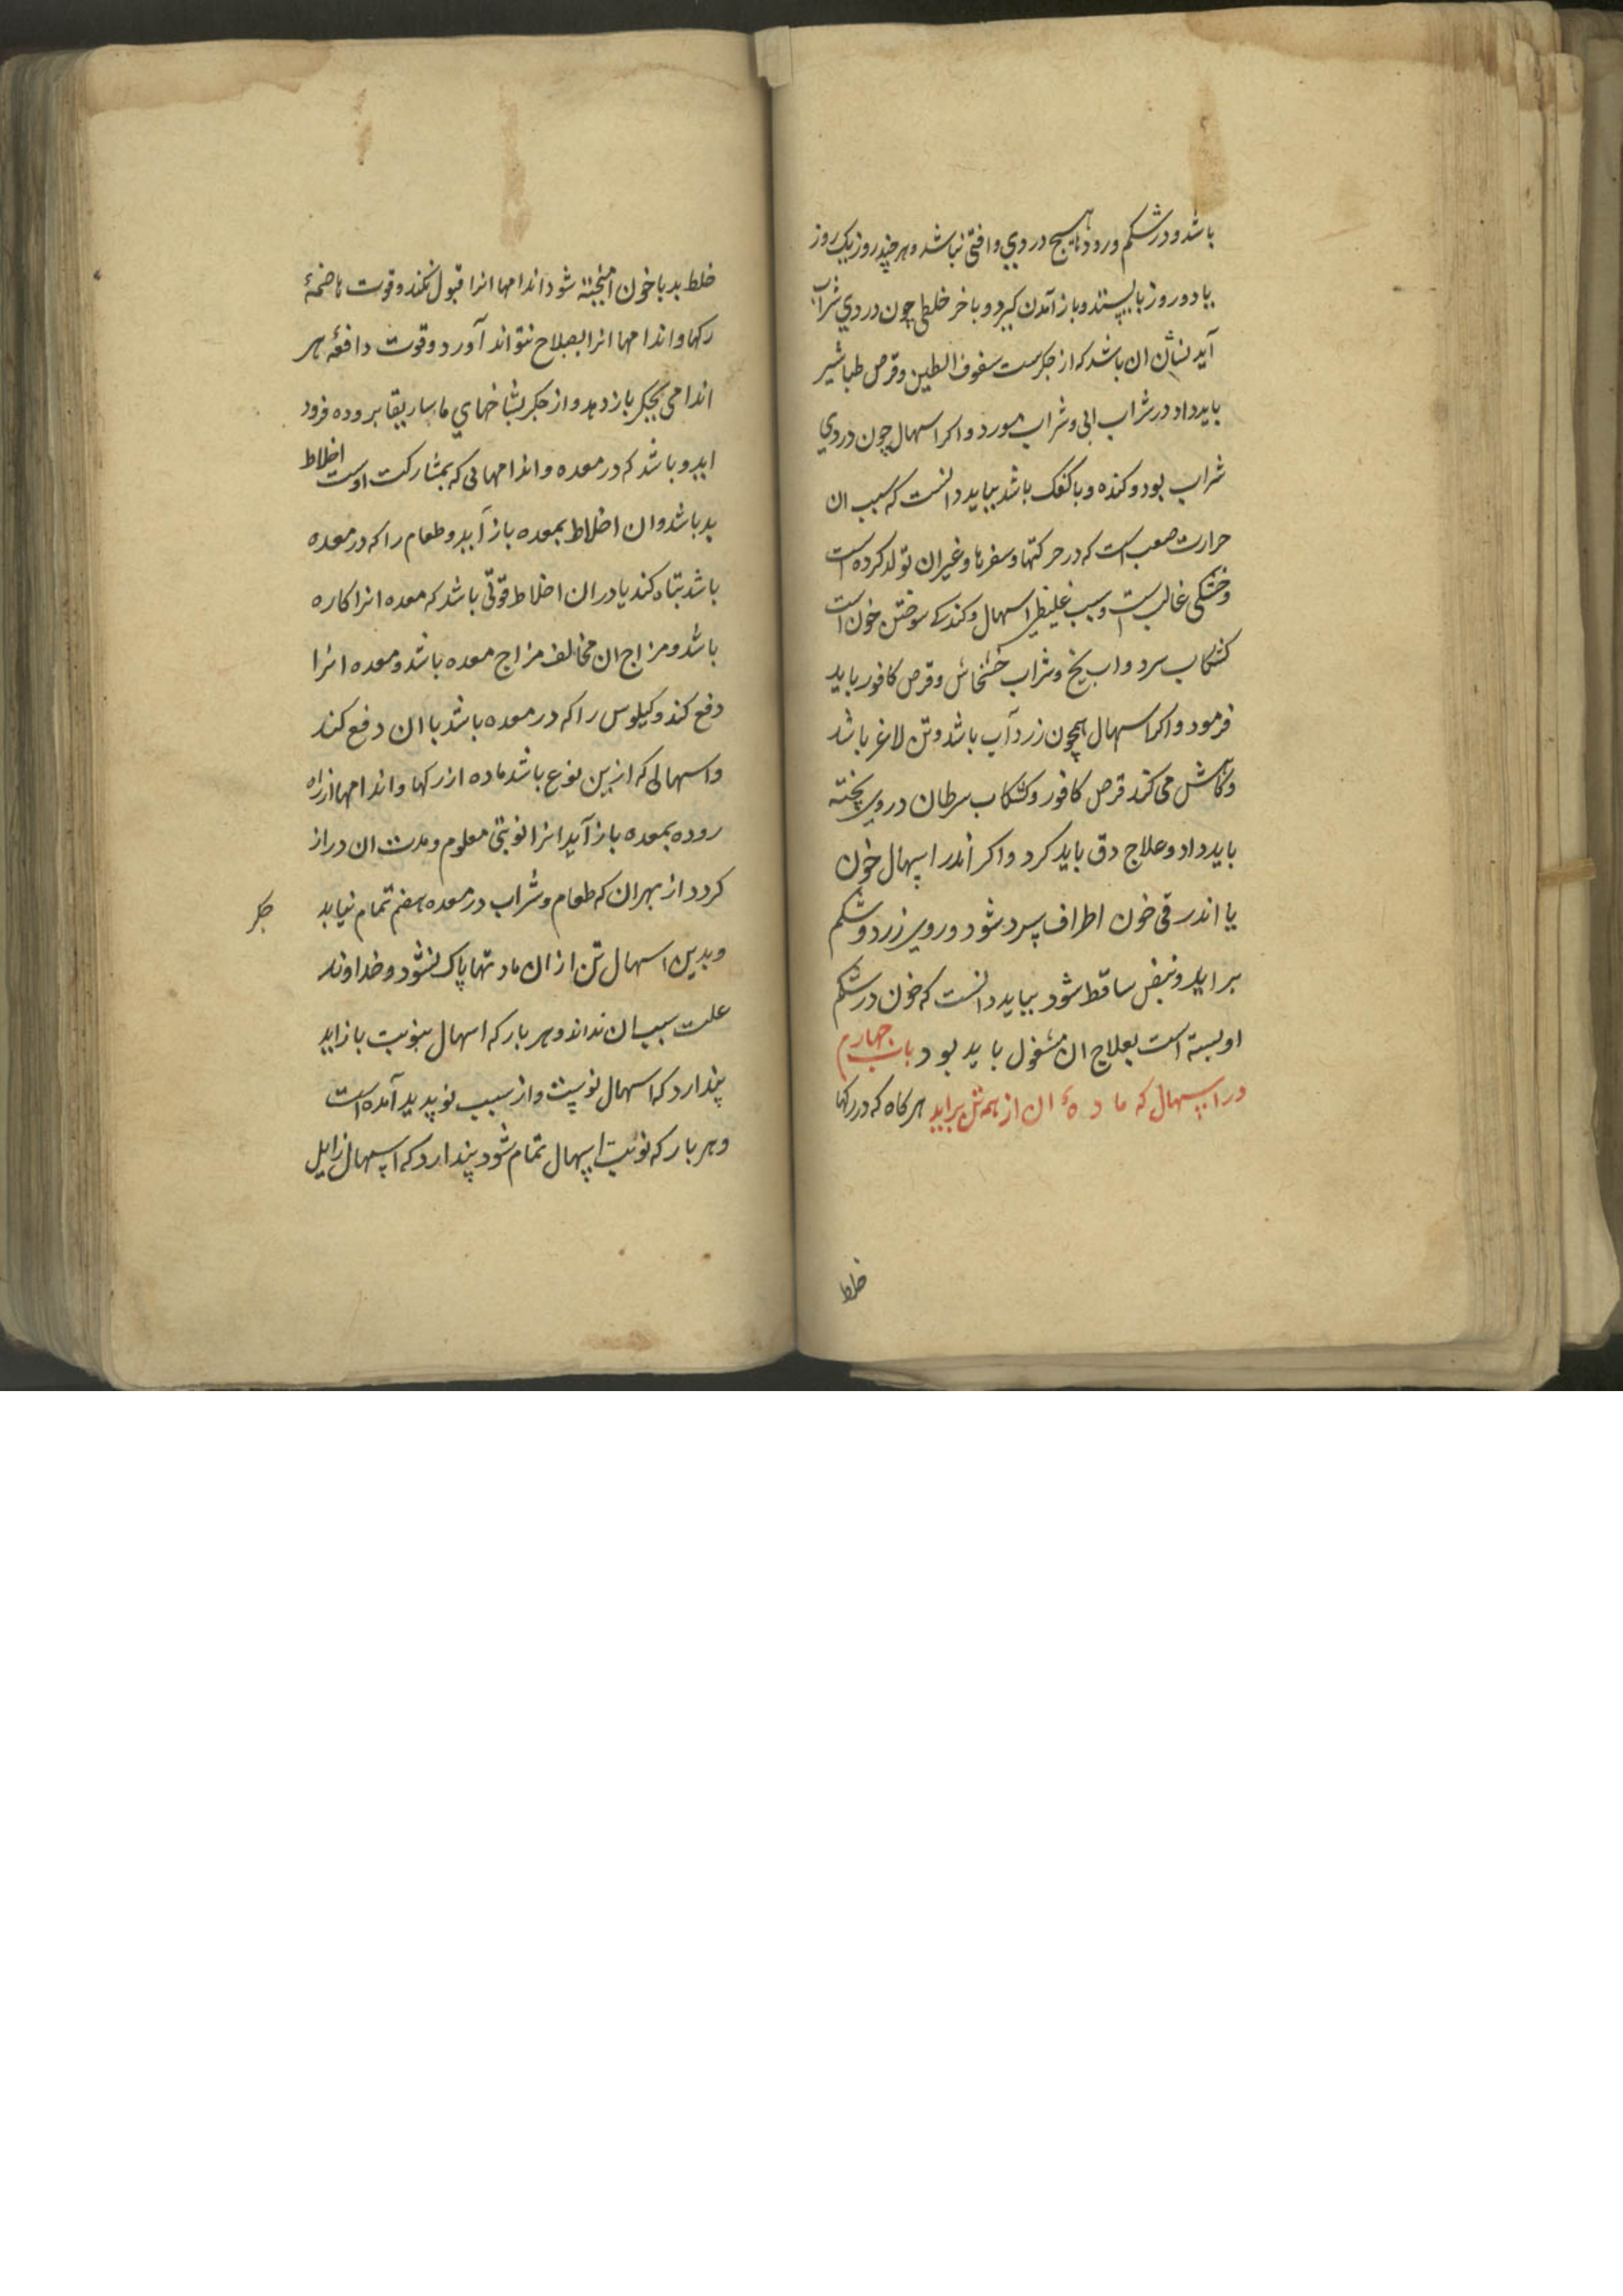 باشد و در شکم و رودها هیچ دردی و افتی نباشد و هر چند روز یک روز
یا دو روز بایستد و باز آمدن کیرد و باخر خلطی چون دردی شراب
آید نشان ان باشد که از جکرست سفوف الطین و قرص طباشیر
باید داد در شراب ابی و شراب مورد و اکر اسهال چون دردی
شراب بود و کنده و با کفک باشد بباید دانست که سبب ان
حرارت صعب است که در حرکتها و سفرها و غیر ان تولد کرده است
و خشکی غالب است و سبب غلیظی اسهال و کندکی سوختن خون است
کشکاب سرد و اب یخ و شراب خشخاش و قرص کافور باید
فرمود و اکر اسهال همچون زردآب باشد و تن لاغر باشد
و کاهش می کند قرص کافور و کشکاب سرطان در وی پخته
باید داد و علاج دق باید کرد و اکر اندر اسهال خون
یا اندر قی خون اطراف سرد شود و روی زرد و شکم
براید و نبض ساقط شود بباید دانست که خون در شکم
او بسته است بعلاج ان مشغول باید بود باب چهارم
در اسهال که ماده ان از همه تن براید هر کاه که در رکها
خلط
خلط بد با خون امیخته شود اندامها انرا قبول نکند و قوت هاضمهٔ
رکها و اندامها انرا بصلاح نتواند آورد و قوت دافعهٔ هر
اندامی بجکر باز دهد و از جکر بشاخهای ماساریقا بروده فرود
اید و باشد که در معده و اندامهائی که بمشارکت اوست اخلاط
بد باشد و ان اخلاط بمعده باز آید و طعام را که در معده
باشد تباه کند یا در ان اخلاط قوتی باشد که معده انرا کاره
باشد و مزاج ان مخالف مزاج معده باشد و معده انرا
دفع کند و کیلوس را که در معده باشد با ان دفع کند
و اسهالی که ازین نوع باشد ماده از رکها و اندامها از راه
روده بمعده باز آید انرا نوبتی معلوم و مدت ان دراز
کردد از بهر ان که طعام و شراب در معده هضم تمام نیابد
جکر
و بدین اسهال تن از ان مادتها پاک نشود و خداوند
علت سبب ان نداند و هر بار که اسهال بنوبت باز اید
پندارد که اسهال نویست و از سبب نو پدید آمده است
و هر بار که نوبت اسهال تمام شود پندارد که اسهال زایل